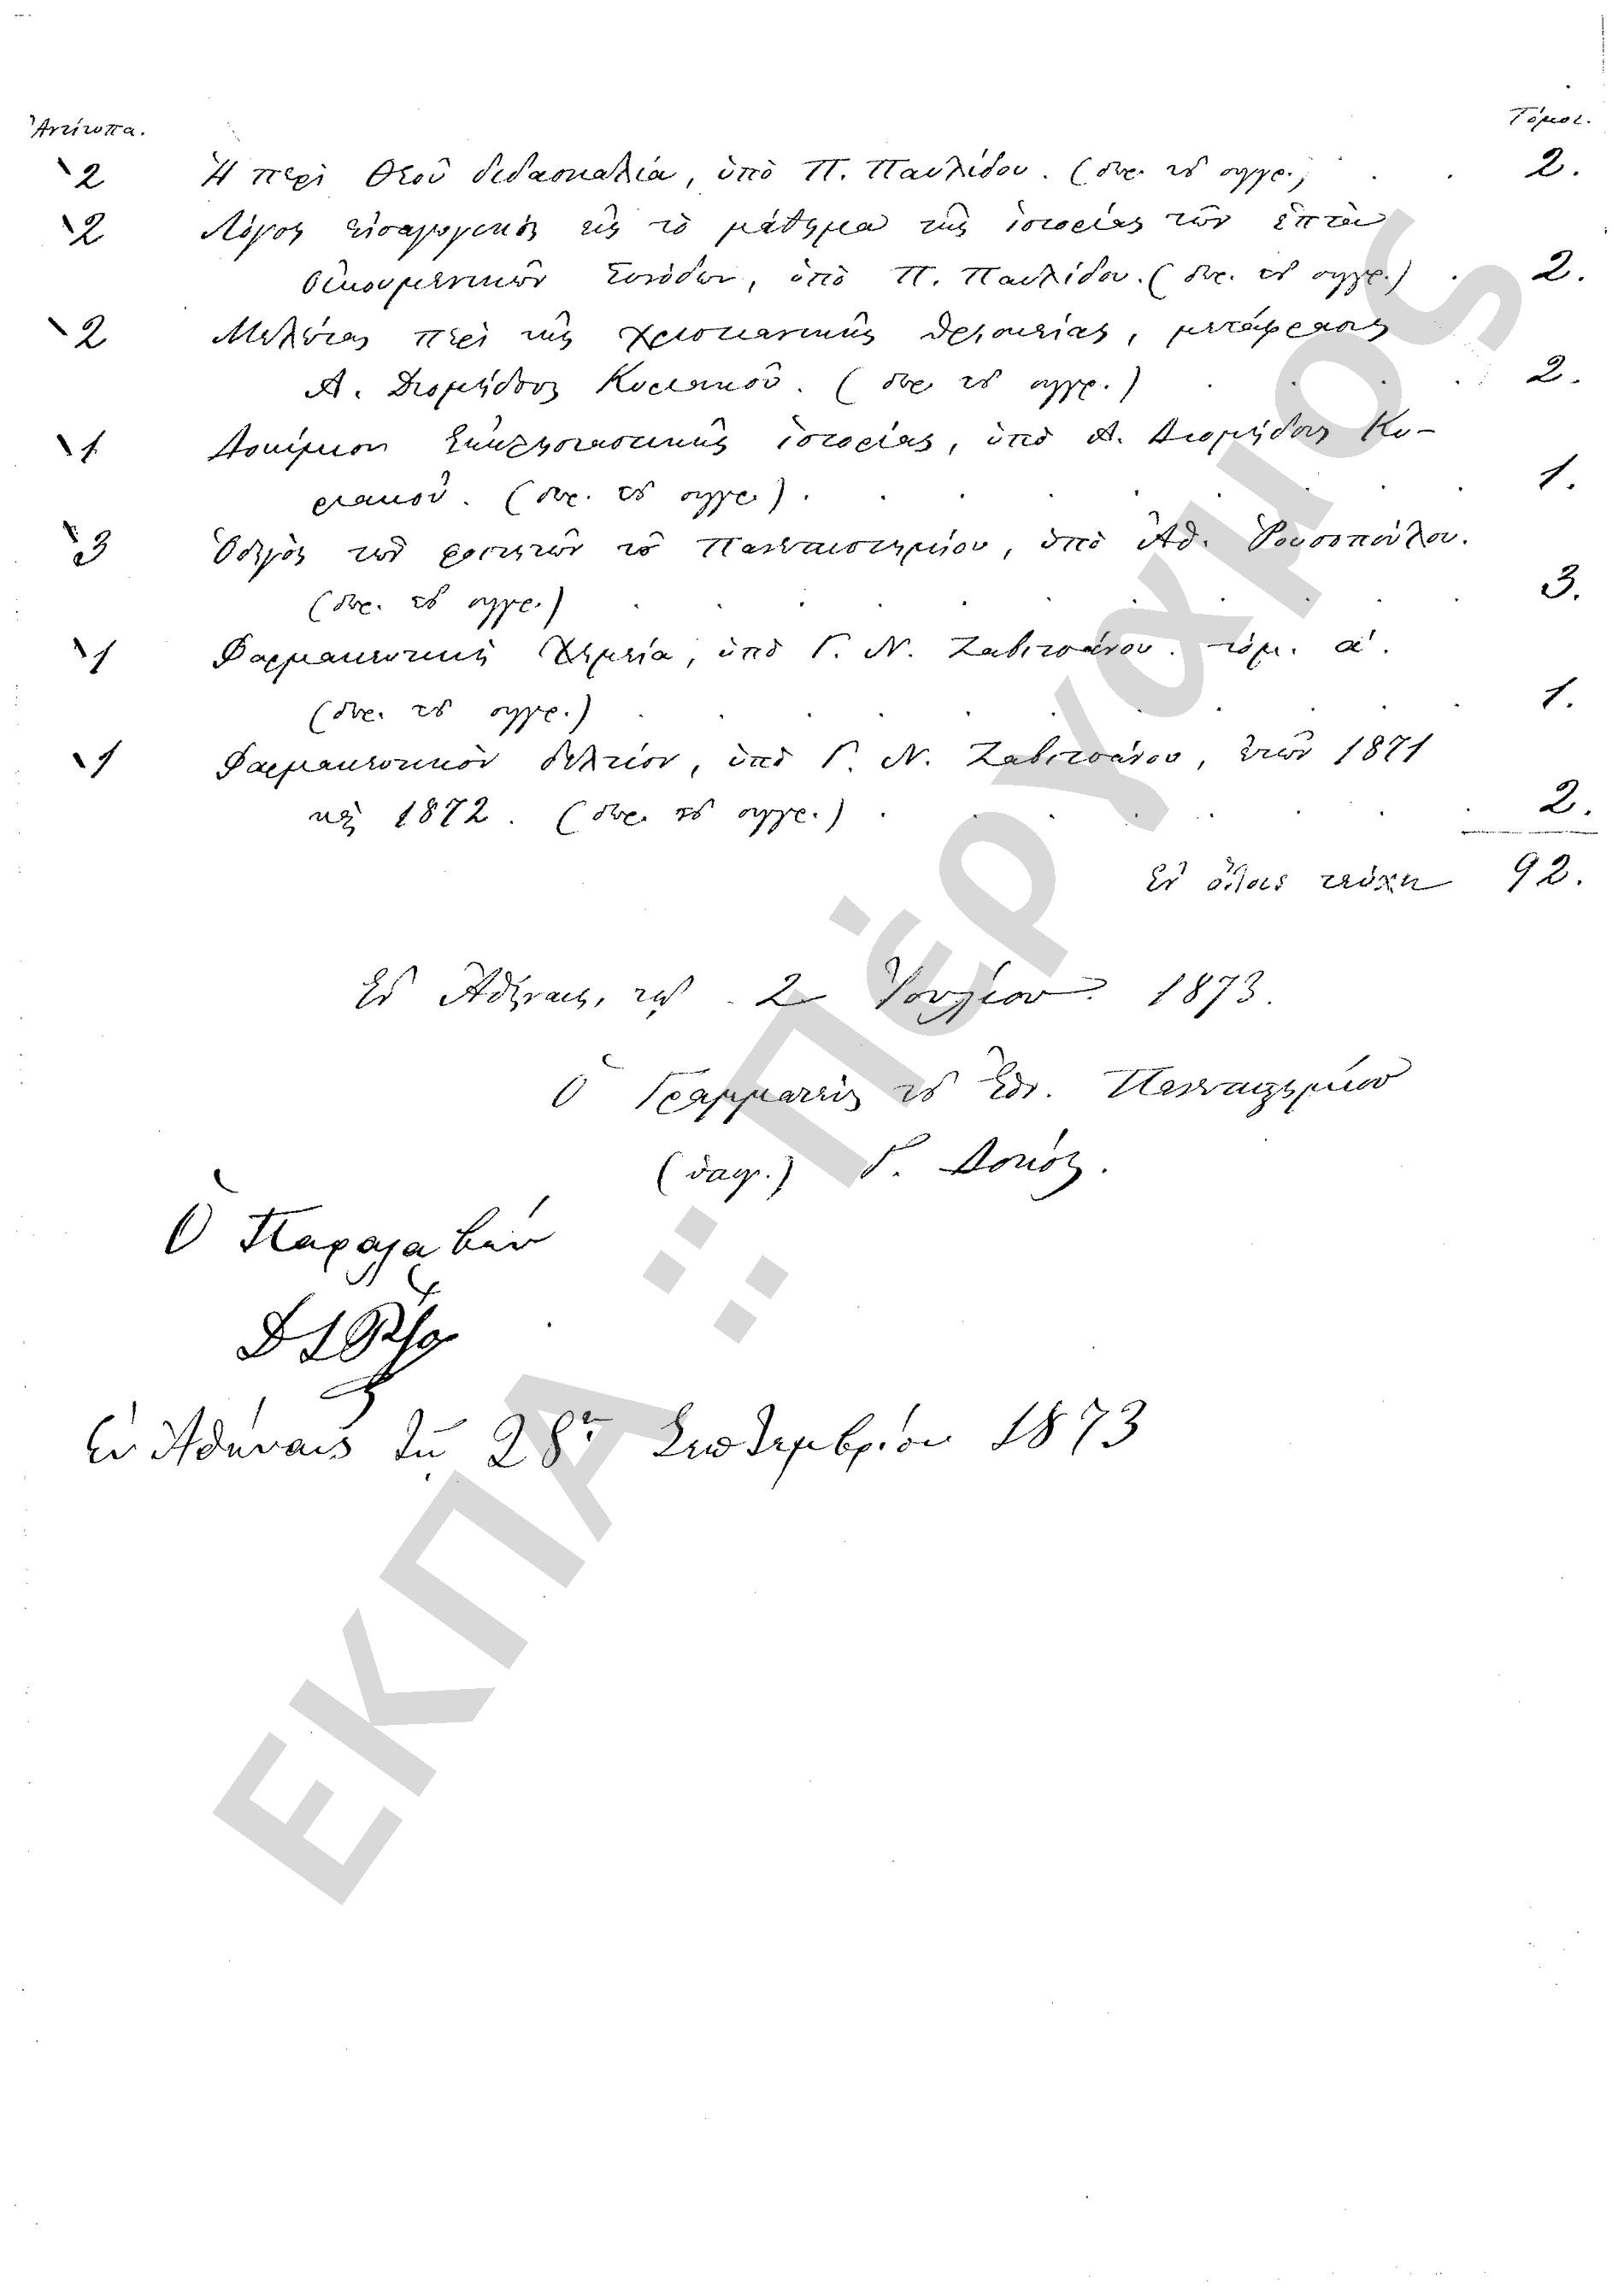 Ἀντίτυπα. Τόμοι.
2 Ἡ περὶ Θεοῦ διδασκαλία, ὑπὸ Π. Παυλίδου. (δωρ. τοῦ συγγρ.) . . 2.
2 Λόγος εἰσαγωγικὸς εἰς τὸ μάθημα τῆς ἱστορίας τῶν ἑπτὰ
Οἰκουμενικῶν Συνόδων, ὑπὸ Π. Παυλίδου. (δωρ. τοῦ συγγρ.) . 2.
2 Μελέται περὶ τῆς χριστιανικῆς θρησκείας, μετάφρασις
Α. Διομήδους Κυριακοῦ. (δωρ. τοῦ συγγρ.) . . . . 2.
1 Δοκίμιον Ἐκκλησιαστικῆς ἱστορίας, ὑπὸ Α. Διομήδους Κυ-
ριακοῦ. (δωρ. τοῦ συγγρ.) . . . . . . . . 1.
3 Ὁδηγὸς τῶν φοιτητῶν τοῦ Πανεπιστημίου, ὑπὸ Ἀθ. Ῥουσοπούλου.
(δωρ. τοῦ συγγρ.) . . . . . . . . . . 3.
1 Φαρμακευτικὴ Χημεία, ὑπὸ Γ. Ν. Ζαβιτσάνου. τόμ. α΄.
(δωρ. τοῦ συγγρ.) . . . . . . . . . . 1.
1 Φαρμακευτικὸν δελτίον, ὑπὸ Γ. Ν. Ζαβιτσάνου, ἐτῶν 1871
καὶ 1872. (δωρ. τοῦ συγγρ.) . . . . . . . . 2.
Ἐν ὅλοις τεύχη 92.
Ἐν Ἀθήναις, τῇ 2 Ἰουλίου 1873.
Ὁ Γραμματεὺς τοῦ Ἐθν. Πανεπιστημίου
(ὑπογ.) Γ. Δοκός.
Ὁ Παραλαβών
Ἐν Ἀθήναις τῇ 28ῃ Σεπτεμβρίου 1873
ΕΚΠΑ :: Πέργαμος